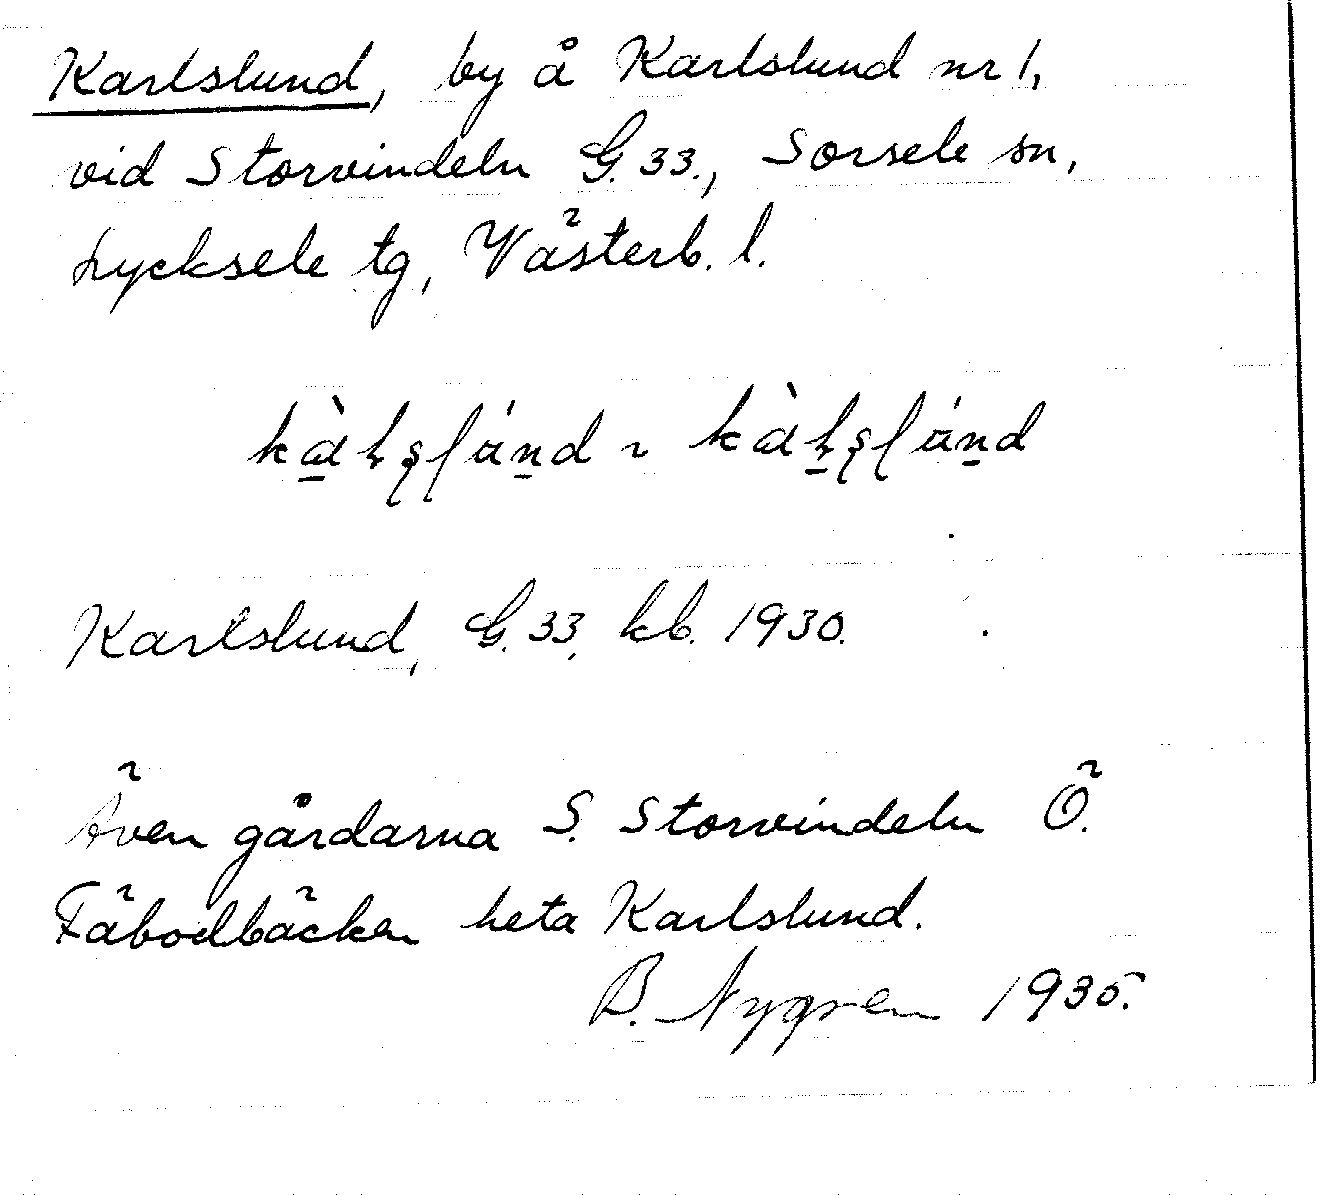 Karlslund, by å Karlslund nr 1,
vid Storvindeln G. 33., Sorsele sn,
Lycksele tg, Västerb. l.
Karlslund, G. 33, kb. 1930.
Även gårdarna S. Storvindeln Ö.
Fäbodbäcken heta Karlslund.
B. Nygren 1935.